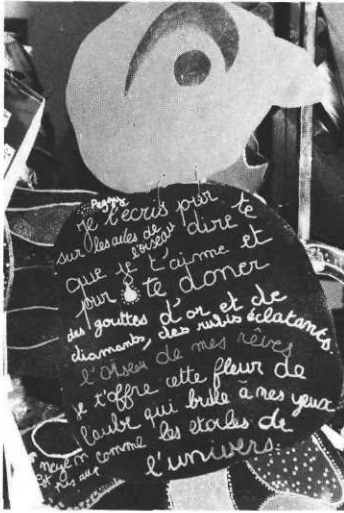 Pegasz
je t'écris pour
sur les ailes de l'oiseau dire te
que je t'aime et
pour te doner
des gouttes d'or et de
diamants, des rubis éclatants.
l'oiseau de mes rêves
je t'offre cette fleur de
l'aube qui brule à mes yeux
comme les etoiles de
l'univers.